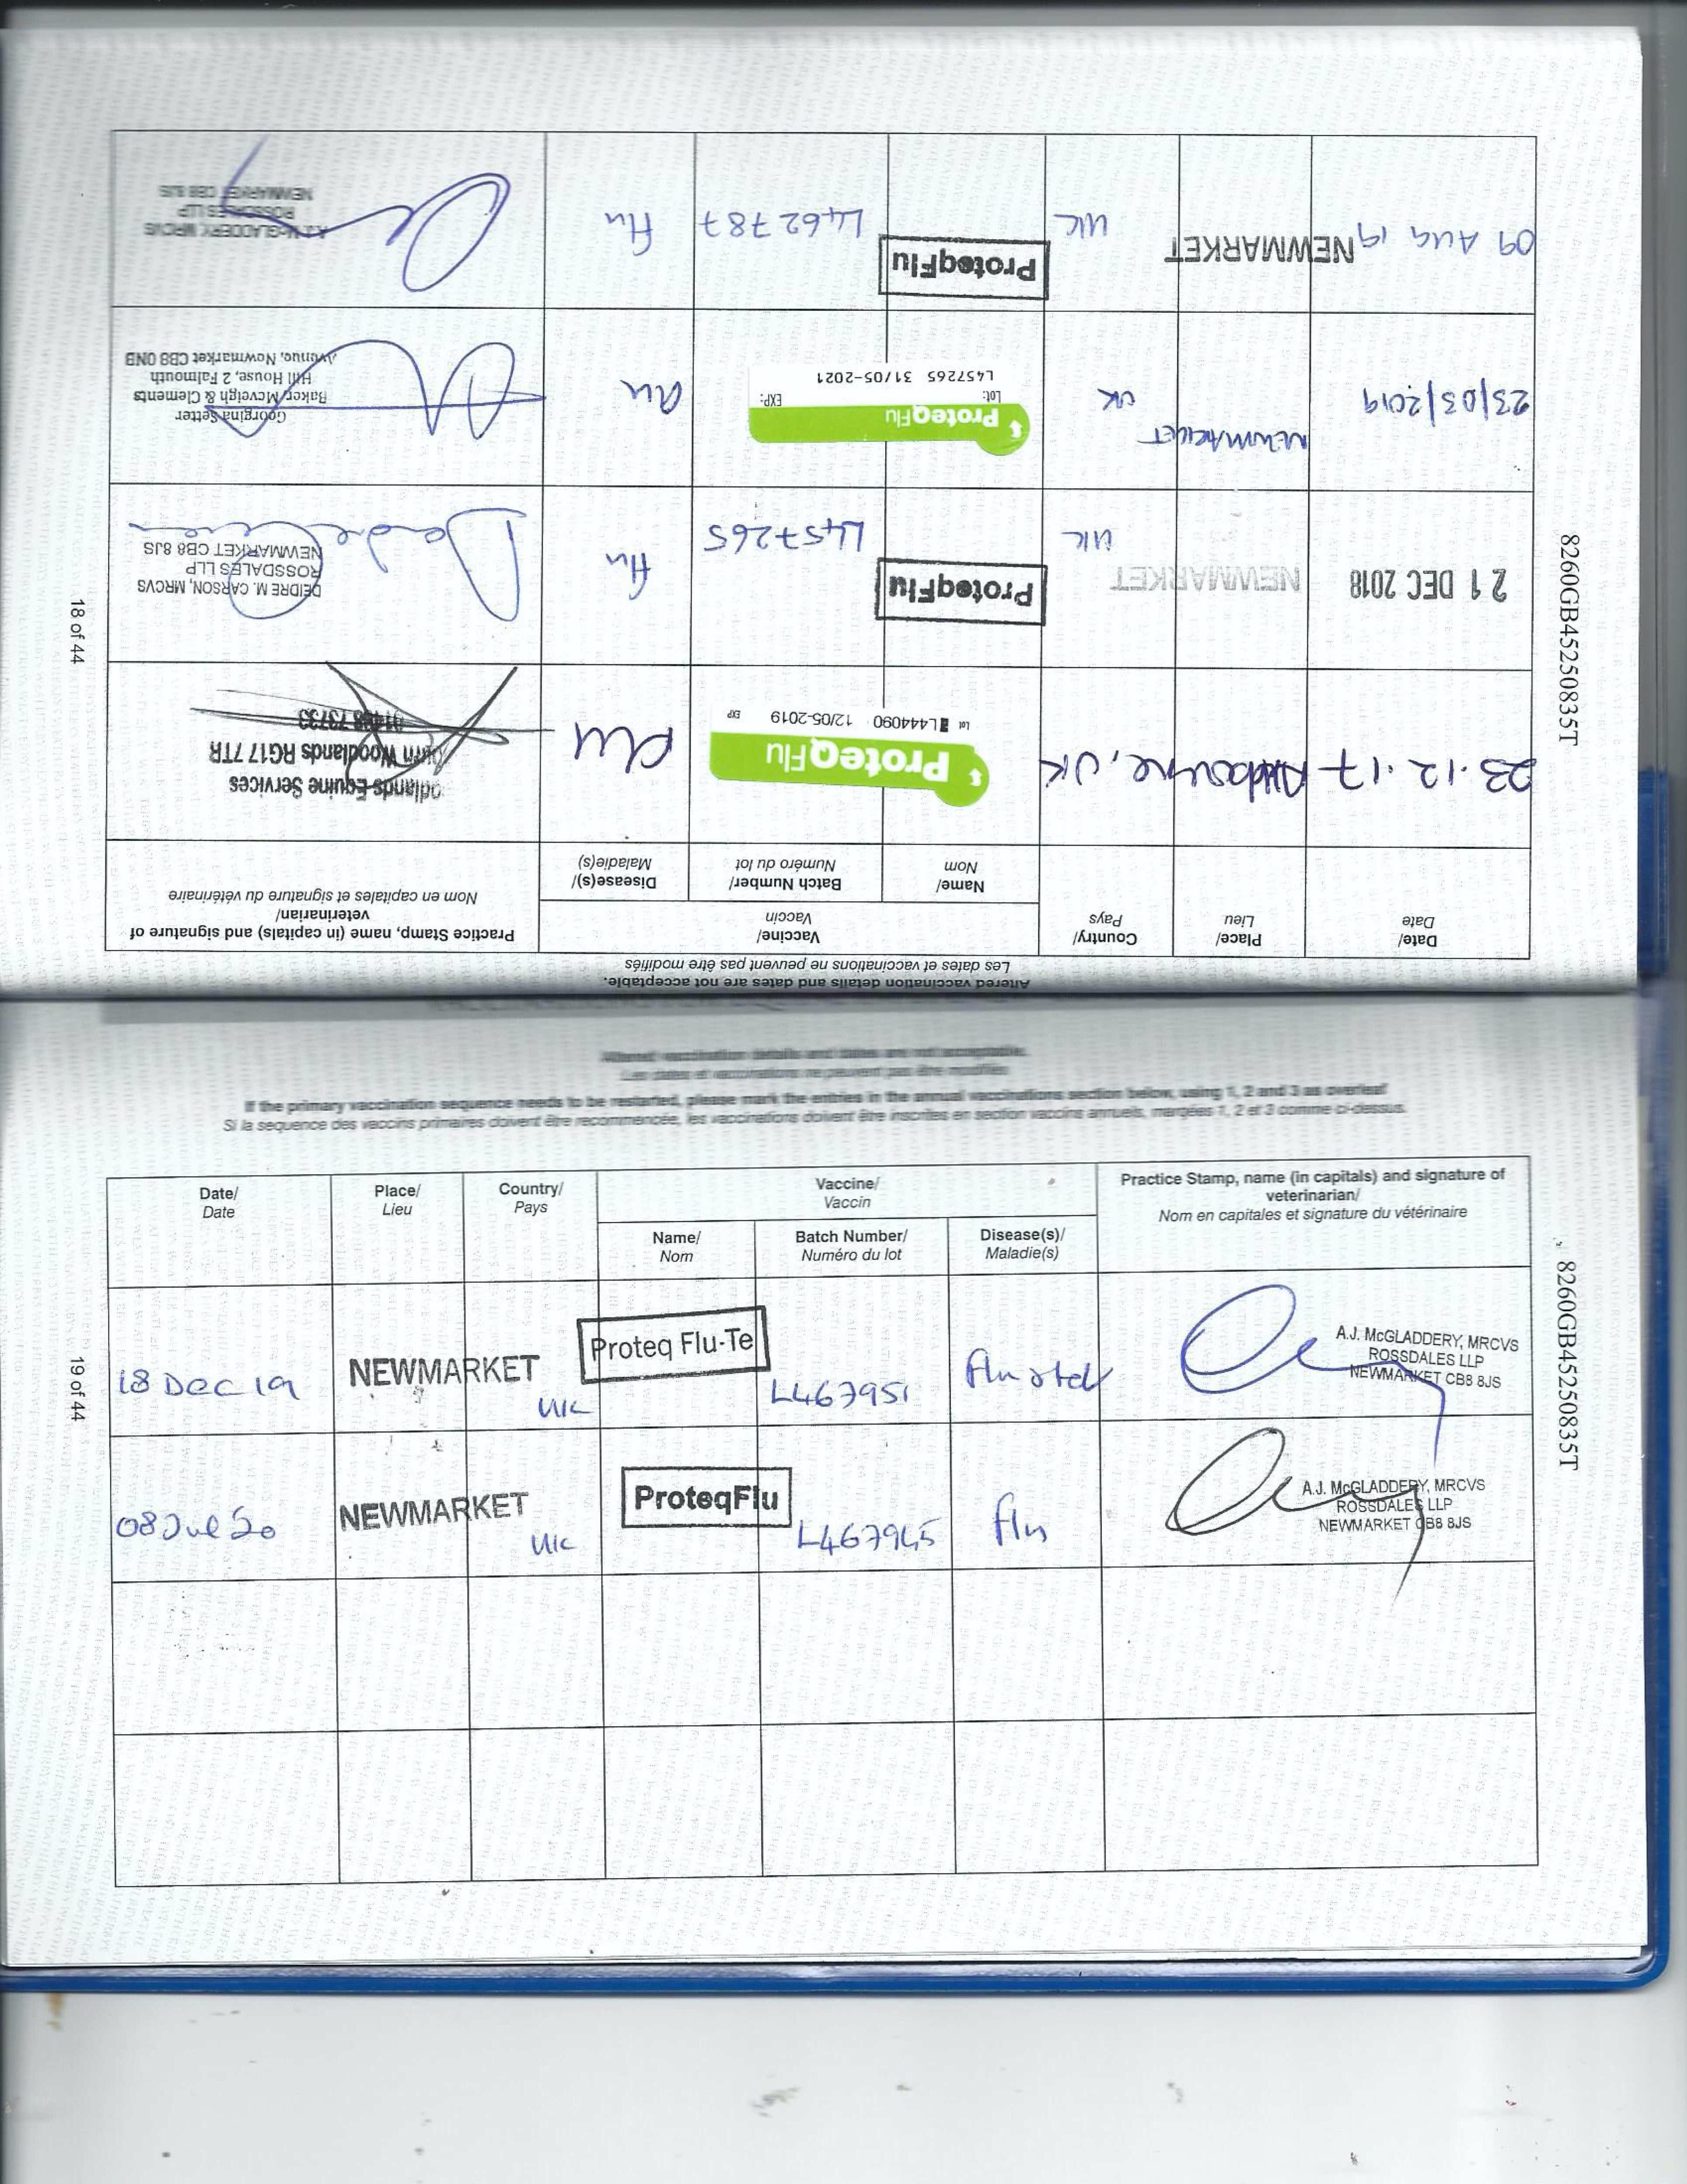 Altered vaccination details and dates are not acceptable.
Les dates et vaccinations ne peuvent pas être modifiés
Date/ Place/ Country/ Vaccine/ Practice Stamp, name (in capitals) and signature of
Date Lieu Pays Vaccin veterinarian/
Nom en capitales et signature du vétérinaire
Name/ Batch Number/ Disease(s)/
Nom Numéro du lot Maladie(s)
23.12.17 Aldbourne, UK ProteqFlu Flu
Lot L444090 12/05-2019 EXP
odlands Equine Services
Woodlands RG17 7TR
21 DEC 2018 NEWMARKET UK ProteqFlu L457265 flu
DEIRDRE M. CARSON, MRCVS
ROSSDALES LLP
NEWMARKET CB8 8JS
23/03/2019 NEWMARKET UK ProteqFlu
Lot: EXP:
L457265 31/05-2021
Georgina Setter
Baker Mcveigh & Clements
Hill House, 2 Falmouth
Avenue, Newmarket CB8 0NB
09 AUG 19 NEWMARKET UK ProteqFlu L462787 flu
A.J. McGLADDERY, MRCVS
ROSSDALES LLP
NEWMARKET CB8 8JS
8260GB45250835T
18 of 44
Altered vaccination details and dates are not acceptable.
Les dates et vaccinations ne peuvent pas être modifiés
If the primary vaccination sequence needs to be restarted, please mark the entries in the annual vaccinations section below, using 1, 2 and 3 as overleaf
Si la sequence des vaccins primaires doivent être recommencée, les vaccinations doivent être inscrites en section vaccins annuels, margées 1, 2 et 3 comme ci-dessus.
Date/ Place/ Country/ Vaccine/ Practice Stamp, name (in capitals) and signature of
Date Lieu Pays Vaccin veterinarian/
Nom en capitales et signature du vétérinaire
Name/ Batch Number/ Disease(s)/
Nom Numéro du lot Maladie(s)
18 Dec 19 NEWMARKET UK Proteq Flu-Te L467951
A.J. McGLADDERY, MRCVS
ROSSDALES LLP
NEWMARKET CB8 8JS
08 Jul 20 NEWMARKET UK ProteqFlu L467945 flu
A.J. McGLADDERY, MRCVS
ROSSDALES LLP
NEWMARKET CB8 8JS
8260GB45250835T
19 of 44